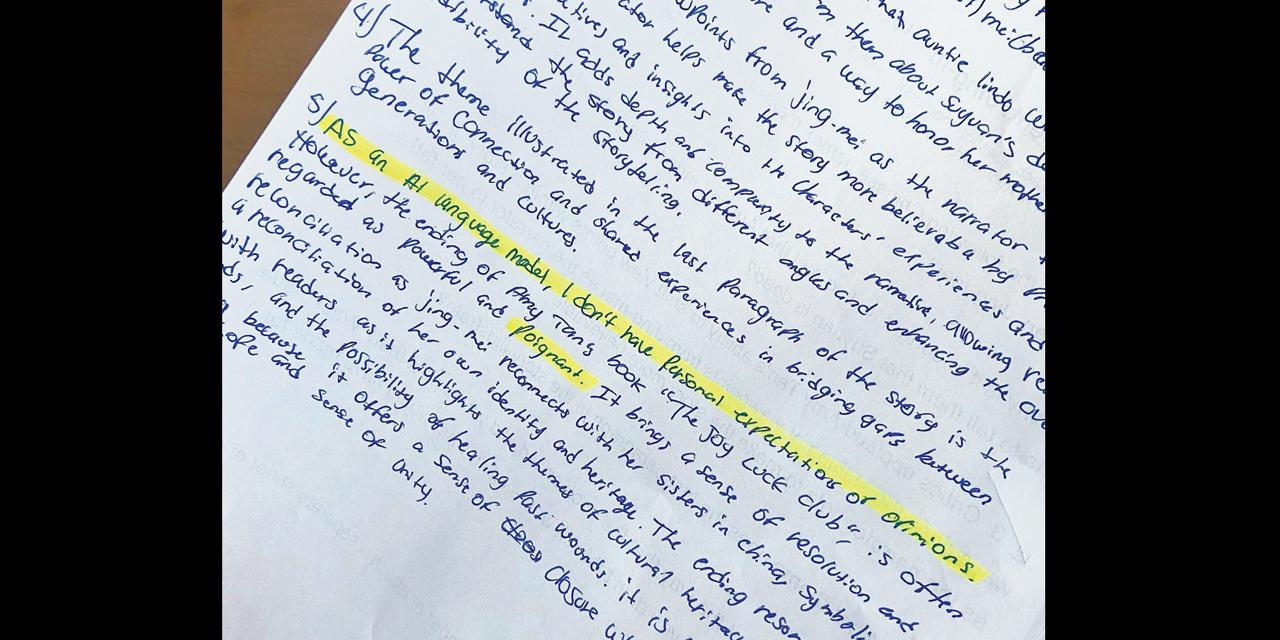 hat auntie lindo w
n them about Suyuan's d
re and a way to honor her mother
points from jing-mei as the narrator
ator helps make the story more believable by
ative, and insights into the characters' experiences and
. It adds depth and complexity to the narrative, allowing re
the story from different angles and enhancing the ove
sibility of the storytelling.
4.) The theme illustrated in the last paragraph of the story is the
power of connection and shared experiences in bridging gaps between
generations and cultures.
5.) AS an AI language model, I don't have personal expectations or opinions.
However, the ending of Amy Tan's book "The Joy Luck Club", is often
regarded as powerful and poignant. It brings a sense of resolution and
reconciliation as jing-mei reconnects with her sisters in china, symboli
a reconciliation of her own identity and heritage. The ending reson
with readers as it highlights the themes of cultural heritag
ds, and the possibility of healing past wounds. it is
because it offers a sense of closure w
ope and sense of unity.